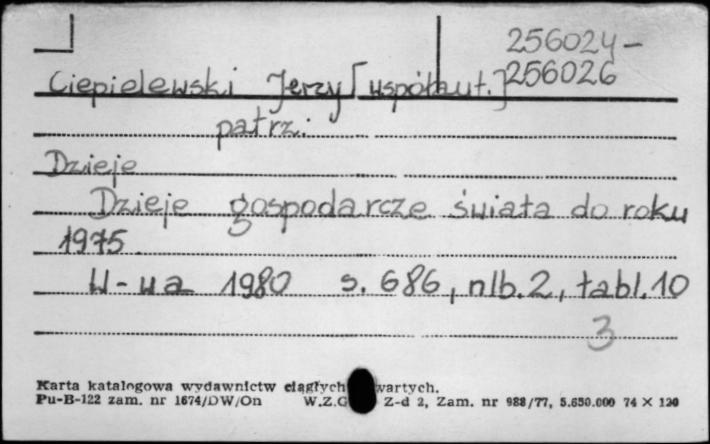 256024-
256026
Ciepielewski Jerzy [współaut.]
patrz:
Dzieje
Dzieje gospodarcze świata do roku
1975.
W-wa 1980 s. 686, nlb. 2, tabl. 10
3
Karta katalogowa wydawnictw ciągłych wartych.
Pu-B-122 zam. nr 1674/DW/On W.Z.G Z-d 2, Zam. nr 988/77, 5.650.000 74 × 120